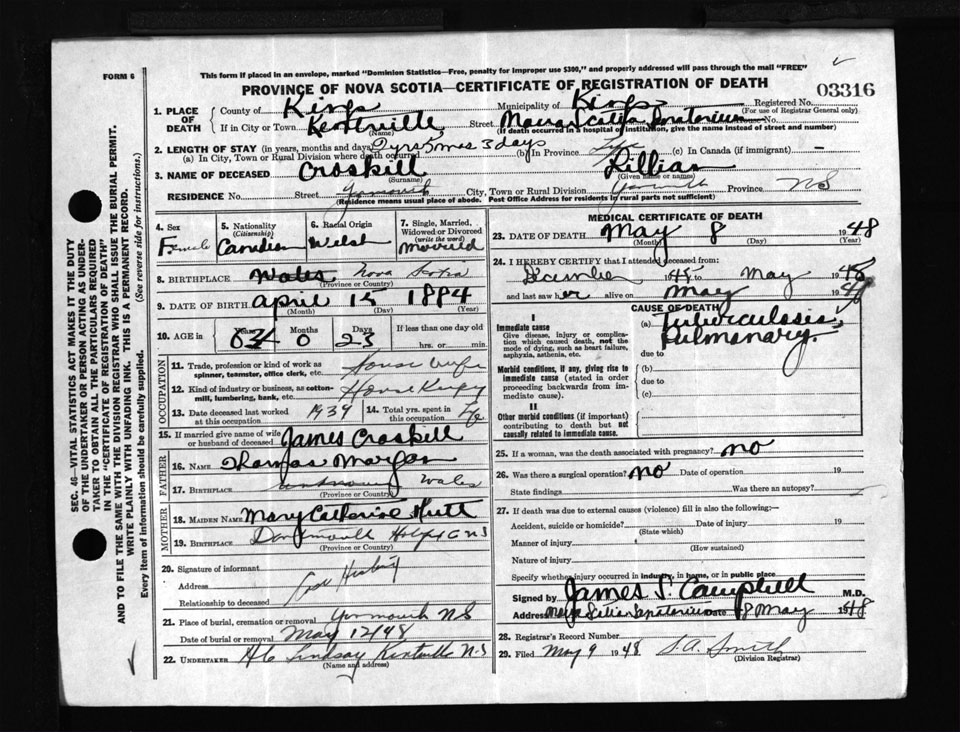 FORM 6
This form if placed in an envelope, marked "Dominion Statistics—Free, penalty for improper use $300," and properly addressed will pass through the mail "FREE"
PROVINCE OF NOVA SCOTIA—CERTIFICATE OF REGISTRATION OF DEATH
03316
SEC. 46—VITAL STATISTICS ACT MAKES IT THE DUTY
OF THE UNDERTAKER OR PERSON ACTING AS UNDER-
TAKER TO OBTAIN ALL THE PARTICULARS REQUIRED
IN THE "CERTIFICATE OF REGISTRATION OF DEATH"
AND TO FILE THE SAME WITH THE DIVISION REGISTRAR WHO SHALL ISSUE THE BURIAL PERMIT.
WRITE PLAINLY WITH UNFADING INK. THIS IS A PERMANENT RECORD.
Every item of information should be carefully supplied. (See reverse side for instructions.)
1. PLACE OF DEATH
County of Kings Municipality of Kings Registered No.
(For use of Registrar General only)
If in City or Town Kentville Street Sanatorium House No.
(Name) (If death occurred in a hospital or institution, give the name instead of street and number)
2. LENGTH OF STAY (in years, months and days)
(a) In City, Town or Rural Division where death occurred 2 yrs 5 mos 3 days (b) In Province Life (c) In Canada (if immigrant) —
3. NAME OF DECEASED Croskill Lillian
(Surname) (Given name or names)
RESIDENCE No. Street Yarmouth City, Town or Rural Division Yarmouth Province NS
(Residence means usual place of abode. Post Office Address for residents in rural parts not sufficient)
4. Sex Female
5. Nationality (Citizenship) Canadian
6. Racial Origin Welsh
7. Single, Married, Widowed or Divorced (write the word) Married
8. BIRTHPLACE Wales Nova Scotia
(Province or Country)
9. DATE OF BIRTH April 15 1884
(Month) (Day) (Year)
10. AGE in Years Months Days If less than one day old
0 23 hrs. or min.
OCCUPATION
11. Trade, profession or kind of work as spinner, teamster, office clerk, etc. House wife
12. Kind of industry or business, as cotton-mill, lumbering, bank, etc. House Keeping
13. Date deceased last worked at this occupation 1939 14. Total yrs. spent in this occupation Life
15. If married give name of wife or husband of deceased James Croskill
FATHER
16. NAME Thomas Morgan
17. BIRTHPLACE unknown Wales
(Province or Country)
MOTHER
18. MAIDEN NAME Mary Catherine Hutt
19. BIRTHPLACE Dartmouth NS
(Province or Country)
20. Signature of informant
Address
Relationship to deceased
21. Place of burial, cremation or removal Yarmouth NS
Date of burial or removal May 12/48
22. UNDERTAKER H C Lindsay Kentville NS
(Name and address)
MEDICAL CERTIFICATE OF DEATH
23. DATE OF DEATH May 8 1948
(Month) (Day) (Year)
24. I HEREBY CERTIFY that I attended deceased from:
December 1945 to May 1948
and last saw her alive on May 1948
CAUSE OF DEATH
I
Immediate cause
Give disease, injury or complica-
tion which caused death, not the
mode of dying, such as heart failure,
asphyxia, asthenia, etc.
(a) Tuberculosis, Pulmonary.
due to
Morbid conditions, if any, giving rise to
immediate cause (stated in order
proceeding backwards from im-
mediate cause).
(b)
due to
(c)
II
Other morbid conditions (if important)
contributing to death but not
causally related to immediate cause.
25. If a woman, was the death associated with pregnancy? no
26. Was there a surgical operation? no Date of operation 19
State findings Was there an autopsy?
27. If death was due to external causes (violence) fill in also the following:—
Accident, suicide or homicide? Date of injury 19
(State which)
Manner of injury
(How sustained)
Nature of injury
Specify whether injury occurred in industry, in home, or in public place
Signed by James S. Campbell M.D.
Address Sanatorium Date 8 May 1948
28. Registrar's Record Number
29. Filed May 9 1948 S.A. Smith
(Division Registrar)